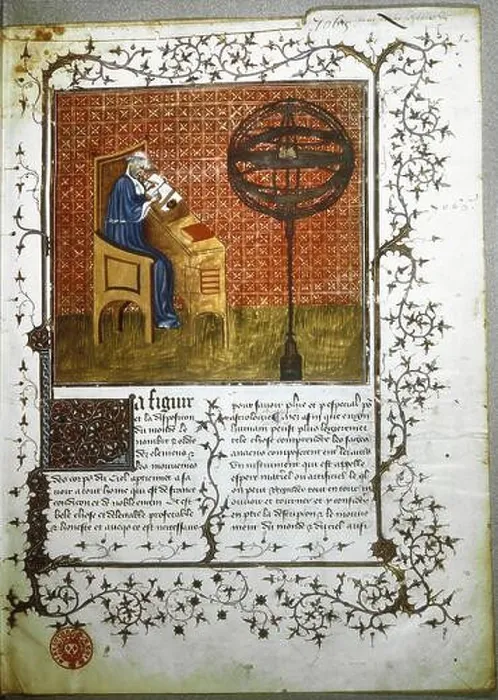 a figure
et la disposicion
du monde le
nombre & ordre
des elemens &
les mouvemens
des corps du Ciel aptienent a sa
voir a tout home qui est de franche
condicion et de noble engin Et est
bele chose et delectable profetable
& honeste et aueqes ce est necessaire
pour savoir phie et p especial po
astrologie Mes afin que engin
humain peust plus legierement
tele chose comprendre les sages
anciens composerent un
instrument qui est appelle
espere materiel ou artificiel le ql
on peut regarder tout en tour
mouvoir et tourner et y considerer
en ptie la descripcion & le mouvement
du monde & du ciel aussi